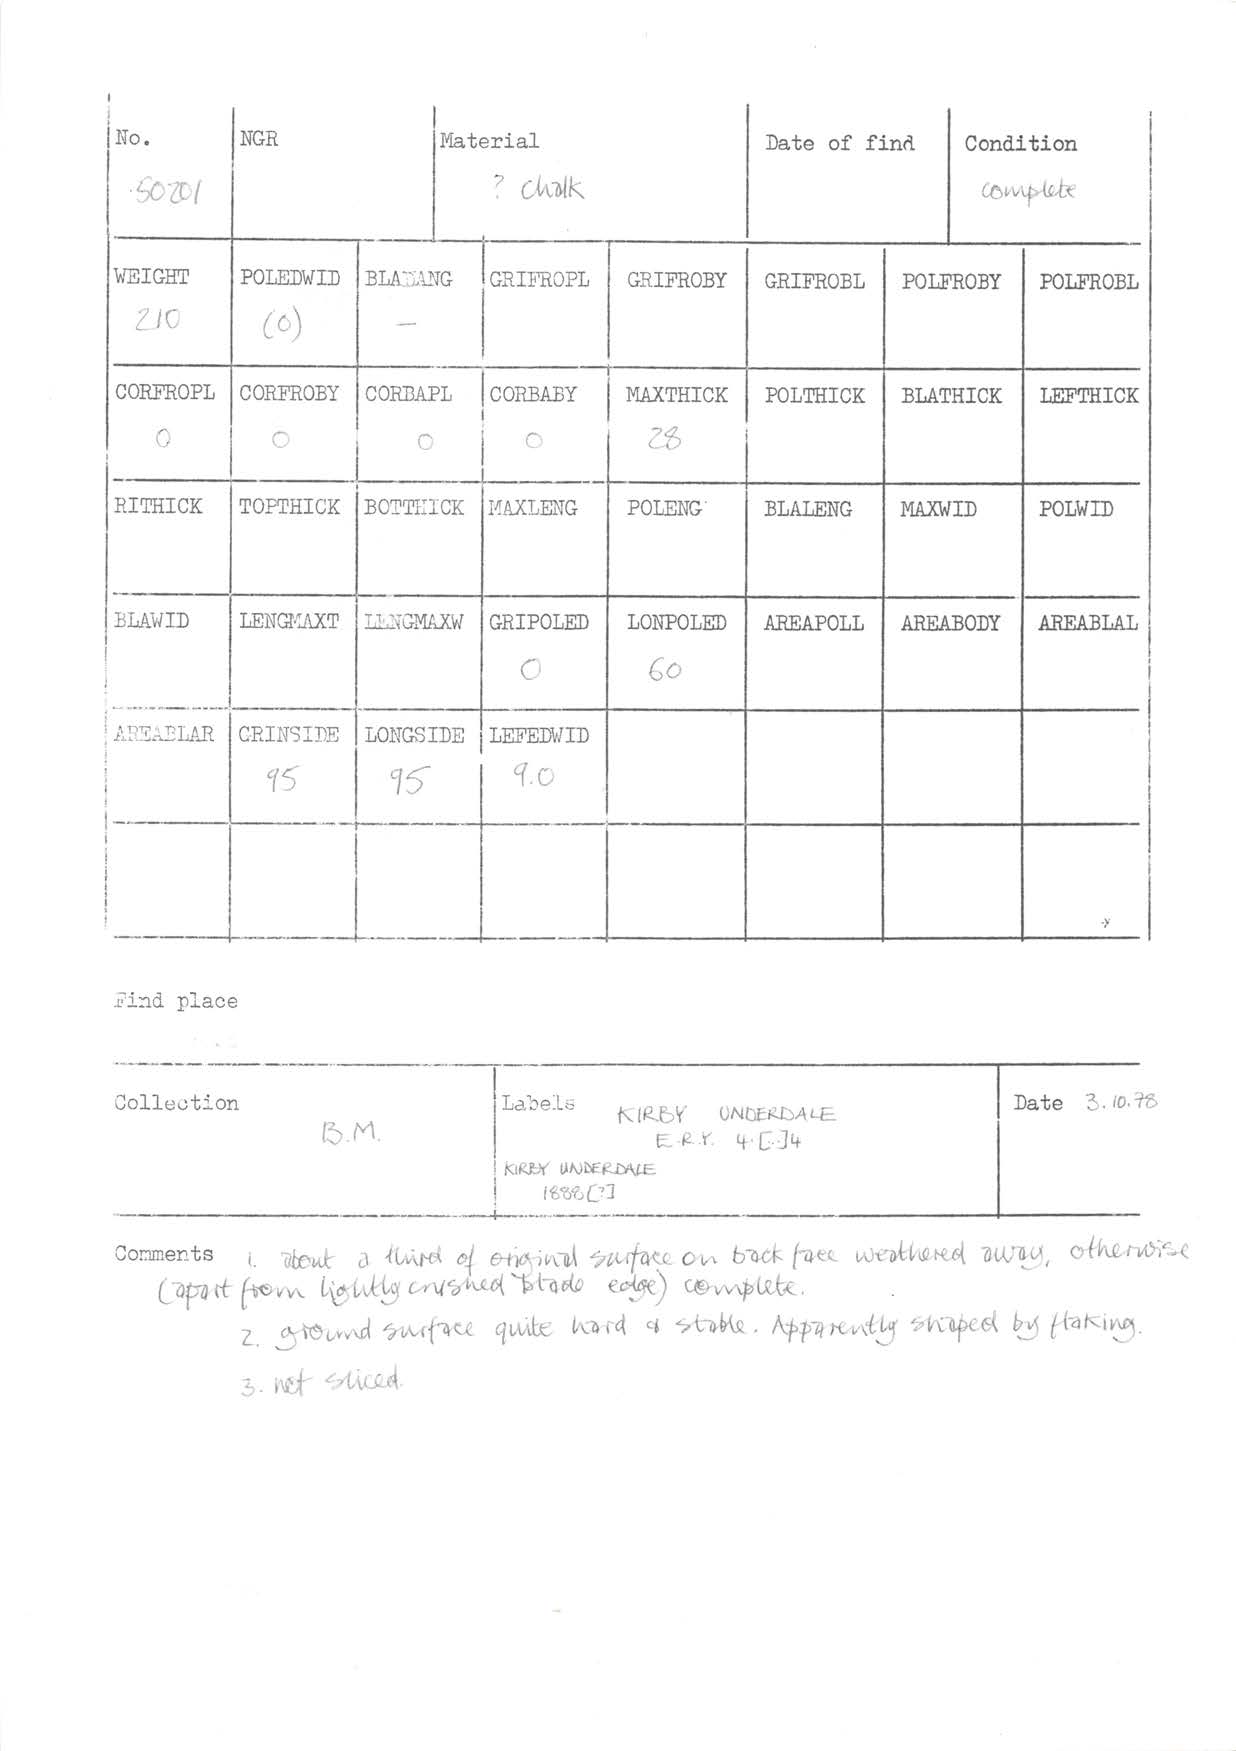 No. NGR Material Date of find Condition
50201 ? chalk complete
WEIGHT POLEDWID BLADANG GRIFROPL GRIFROBY GRIFROBL POLFROBY POLFROBL
210 (0) —
CORFROPL CORFROBY CORBAPL CORBABY MAXTHICK POLTHICK BLATHICK LEFTHICK
0 0 0 0 28
RITHICK TOPTHICK BOTTHICK MAXLENG POLENG BLALENG MAXWID POLWID
BLAWID LENGMAXT LENGMAXW GRIPOLED LONPOLED AREAPOLL AREABODY AREABLAL
0 60
AREABLAR GRINSIDE LONGSIDE LEFEDWID
95 95 9.0
Find place
Collection Labels KIRBY UNDERDALE Date 3.10.78
B.M. E.R.Y. 4.[..]4
KIRBY UNDERDALE
1888[?]
Comments 1. about a third of original surface on back face weathered away, otherwise
(apart from lightly crushed blade edge) complete.
2. ground surface quite hard & stable. Apparently shaped by flaking.
3. not sliced.